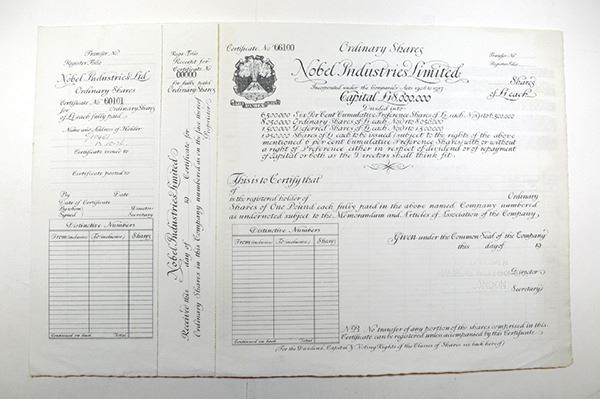 Transfer No
Register Folio
Nobel Industries Ltd
Ordinary Shares
Certificate No 60101
for Ordinary Shares
of £1 each fully paid
Name and Address of Holder
Certificate issued to
Certificate posted to
By Date
Date of Certificate
Director
Signed Secretary
Distinctive Numbers
From (inclusive) To (inclusive) Shares
Continued on back Total
Regr. Folio
Receipt for
Certificate No
00000
for fully paid
Ordinary Shares
Nobel Industries Limited
Received this day of 19 Certificate for
Ordinary Shares in this Company numbered as in the face hereof
Certificate No 66100 Ordinary Shares
Transfer No
Register Folio
Nobel Industries Limited
Shares
of £1 each
Incorporated under the Companies Acts 1908 to 1917
Capital £18,000,000
Divided into
6,500,000 Six Per Cent Cumulative Preference Shares of £1 each
8,050,000 Ordinary Shares of £1 each
1,500,000 Deferred Shares of £1 each
1,950,000 Shares of £1 each to be issued (subject to the rights of the above
mentioned 6 per cent Cumulative Preference Shares) with or without
a right of Preference either in respect of dividend or of repayment
of Capital or both as the Directors shall think fit.
This is to Certify that
of
is the registered holder of Ordinary
Shares of One Pound each fully paid in the above named Company numbered
as undernoted subject to the Memorandum and Articles of Association of the Company.
Distinctive Numbers
From (inclusive) To (inclusive) Shares
Continued on back Total
Given under the Common Seal of the Company
this day of 19
Director
Secretary
N.B. No transfer of any portion of the shares comprised in this
Certificate can be registered unless accompanied by this Certificate
(For the Dividend, Capital & Voting Rights of the Classes of Shares see back hereof)